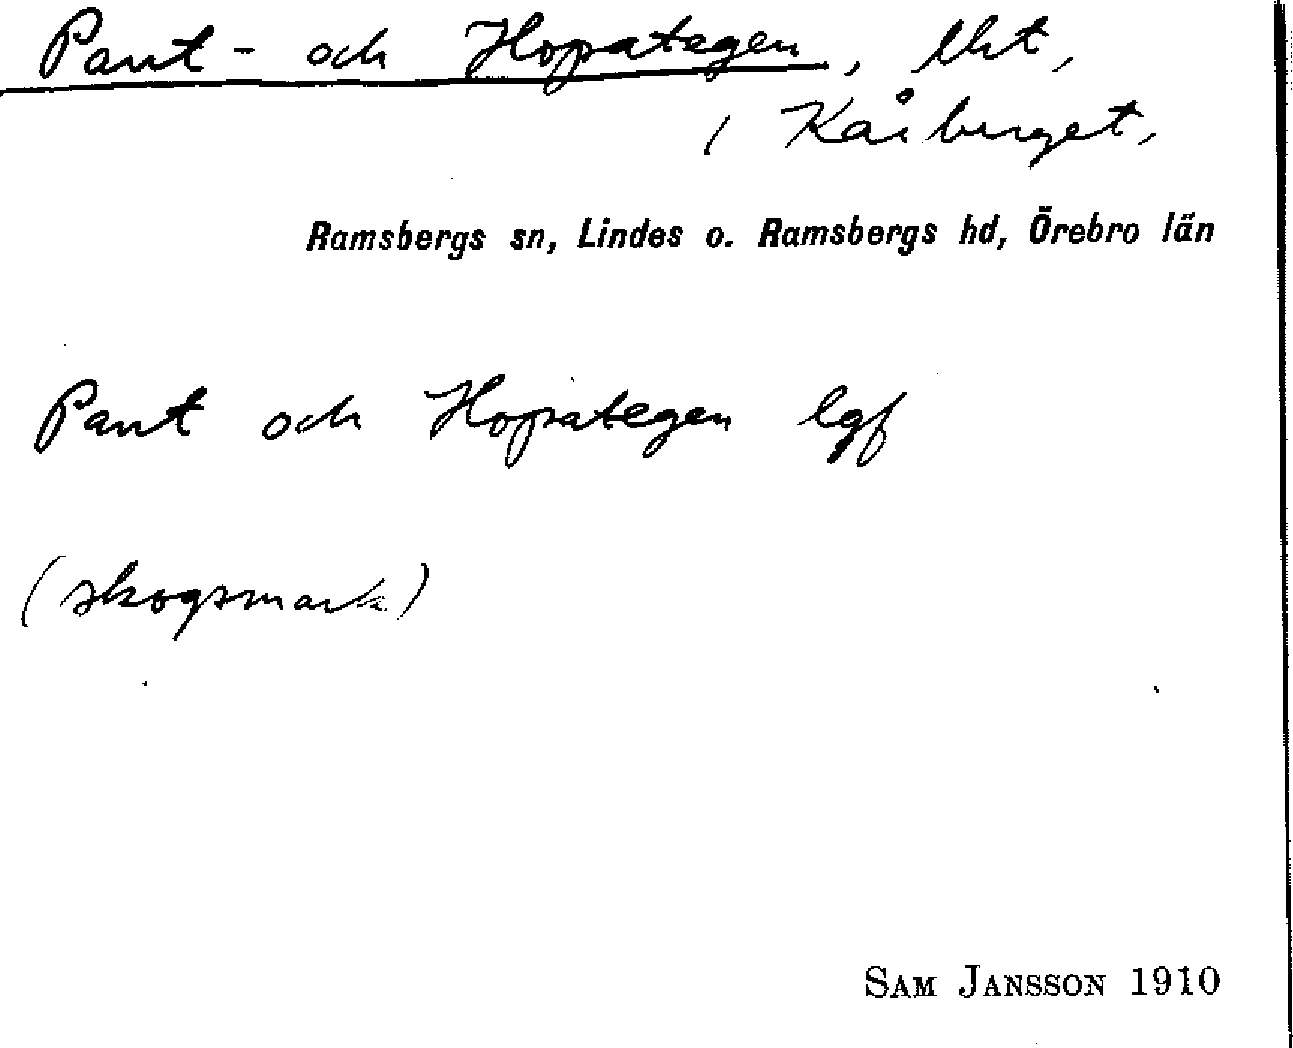 Pant- och Hopatagen, lht,
i Kåberget,
Ramsbergs sn, Lindes o. Ramsbergs hd, Örebro län
Pant och Hopategen lgf
(skogsmark)
SAM JANSSON 1910